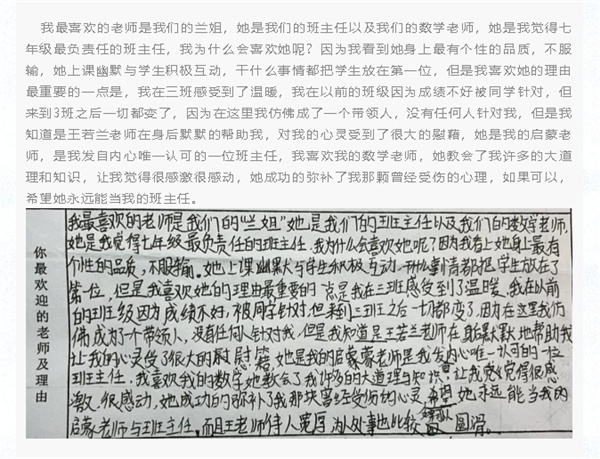 我最喜欢的老师是我们的兰姐，她是我们的班主任以及我们的数学老师，她是我觉得七
年级最负责任的班主任，我为什么会喜欢她呢？因为我看到她身上最有个性的品质，不服
输，她上课幽默与学生积极互动，干什么事情都把学生放在第一位，但是我喜欢她的理由
最重要的一点是，我在三班感受到了温暖，我在以前的班级因为成绩不好被同学针对，但
来到3班之后一切都变了，因为在这里我仿佛成了一个带领人，没有任何人针对我，但是我
知道是王若兰老师在身后默默的帮助我，对我的心灵受到了很大的慰藉，她是我的启蒙老
师，是我发自内心唯一认可的一位班主任，我喜欢我的数学老师，她教会了我许多的大道
理和知识，让我觉得很感激很感动，她成功的弥补了我那颗曾经受伤的心理，如果可以，
希望她永远能当我的班主任。
你最欢迎的老师及理由
我最喜欢的老师是我们的“兰姐”她是我们的班主任以及我们的数学老师,
她是我觉得七年级最负责任的班主任.我为什么会喜欢她呢?因为我看上她身上最有
个性的品质,不服输。她上课幽默与学生积极互动.干什么事情都把学生放在了
第一位,但是我喜欢她的理由最重要的一点是我在三班感受到了温暖,我在以前
的班级因为成绩不好,被同学针对,但来到三班之后一切都变了,因为在这里我仿
佛成为了一个带领人,没有任何人针对我.但是我知道是王若兰老师在默默地帮助我
让我的心灵受了很大的慰藉.她是我的启蒙老师是我发内心唯一认可的一位
班主任.我喜欢我的数学她教会了我许多的大道理与知识 让我觉得很感
激.很感动,她成功的弥补了我那块曾经受伤的心灵 希望她永远能当我的
启蒙老师与班主任.而且王老师待人宽厚 为人处事也比较 圆滑。